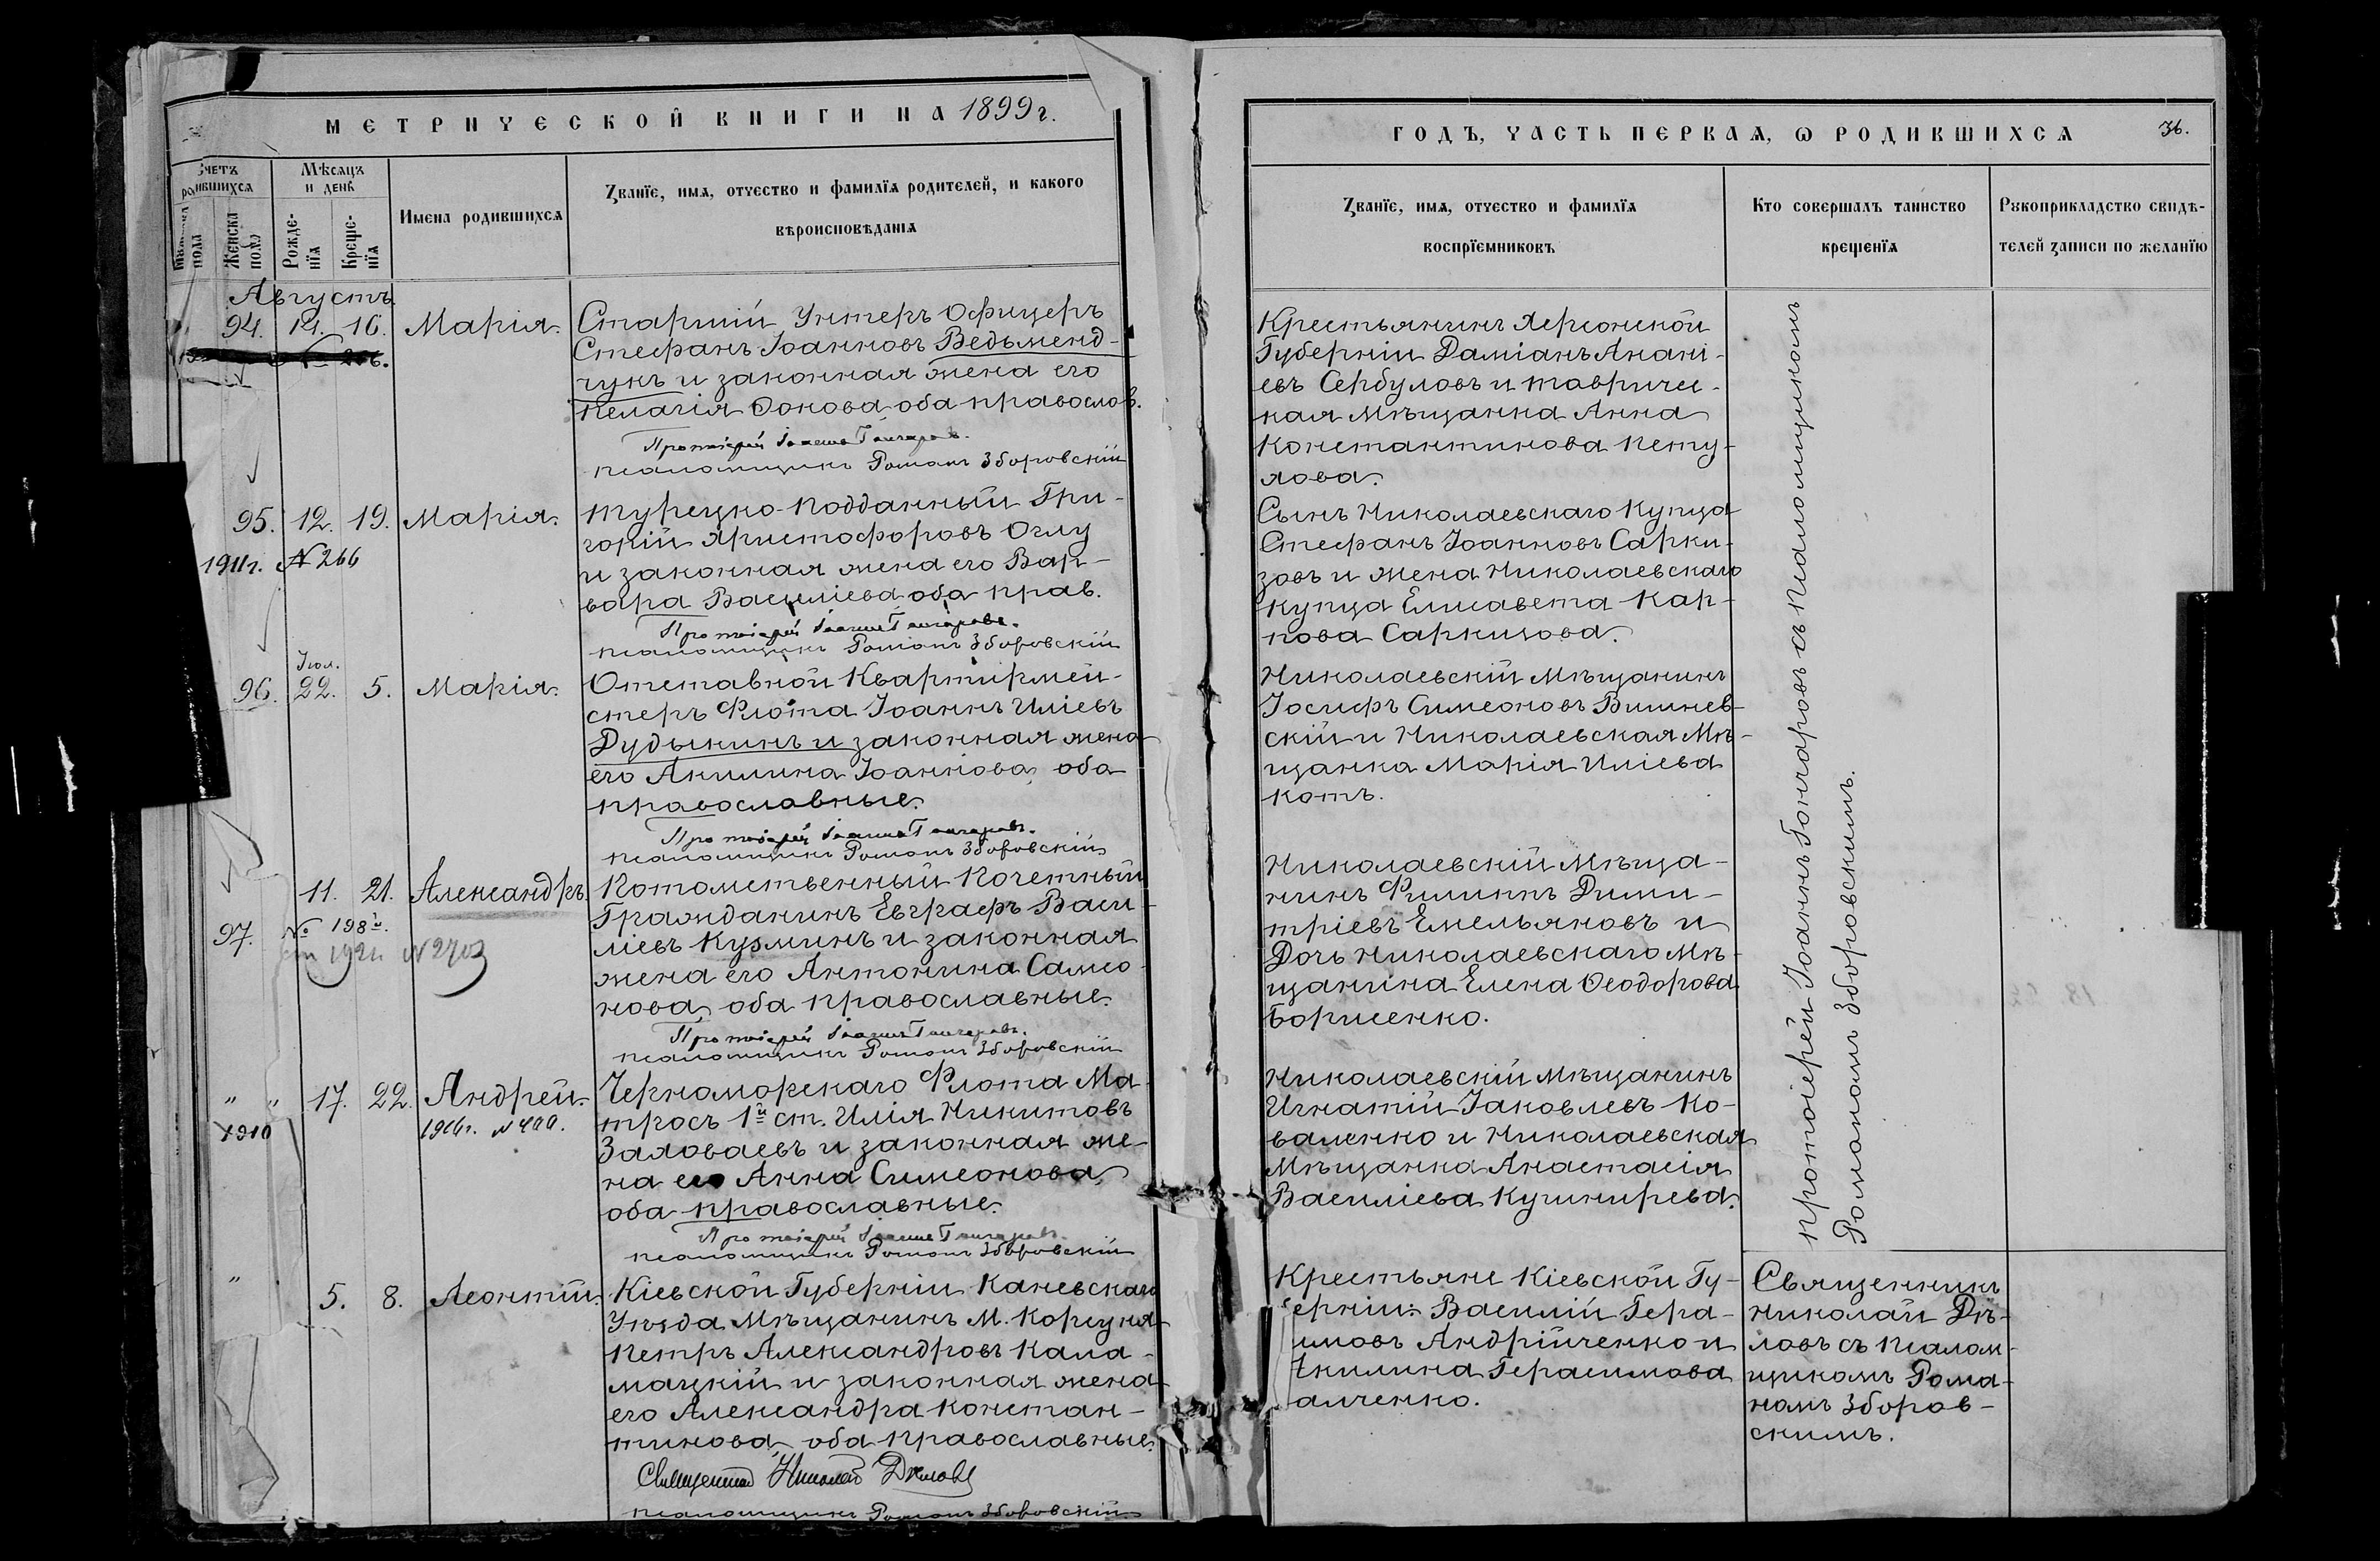 МЕТРИЧЕСКОЙ КНИГИ НА 1899 г.
Счетъ родившихся
Мѣсяцъ и день
Имена родившихся
Званїе, имя, отчество и фамилїя родителей, и какого
вѣроисповѣданія
пола
Женска пола
Рожде-
нїя
Креще-
нїя
Августъ.
94. 14. 16. Марія.
Старшій Унтеръ Офицеръ
Стефанъ Іоанновъ Ведьменд-
чукъ и законная жена его
Пелагія Фокова оба правослов.
Протоіерей Іоаннъ Гончаровъ.
псаломщикъ Романъ Зборовскій
95. 12. 19. Марія.
1911 г. № 266
Турецко-подданный Гри-
горій Христофоровъ Оглу
и законная жена его Вар-
вара Василіева оба прав.
Протоіерей Іоаннъ Гончаровъ.
псаломщикъ Романъ Зборовскій
Іюл.
96. 22. 5. Марія.
Отставной Квартирмей-
стеръ Флота Іоаннъ Иліевъ
Дудыкинъ и законная жена
его Акилина Іоаннова, оба
православные.
Протоіерей Іоаннъ Гончаровъ.
псаломщикъ Романъ Зборовскій
11. 21. Александръ.
97. № 198
Потомственный Почетный
Гражданинъ Евграфъ Васи-
ліевъ Кузминъ и законная
жена его Антонина Самсо-
нова, оба православные.
Протоіерей Іоаннъ Гончаровъ.
псаломщикъ Романъ Зборовскій
" " 17. 22. Андрей.
1910
1916 г. № 400.
Черноморскаго Флота Ма-
тросъ 1й ст. Илія Никитовъ
Заловаевъ и законная же-
на его Анна Симеонова,
оба православные.
Протоіерей Іоаннъ Гончаровъ.
псаломщикъ Романъ Зборовскій
" 5. 8. Леонтій.
Кіевской Губерніи Каневскаго
Уѣзда Мѣщанинъ М. Корсуня
Петръ Александровъ Кала-
мацкій и законная жена
его Александра Констан-
тинова, оба православные.
Священникъ Николай Дѣловъ
псаломщикъ Романъ Зборовскій
ГОДЪ, ЧАСТЬ ПЕРВАЯ, Ѡ РОДИВШИХСЯ
36.
Званїе, имя, отчество и фамилїя
воспрїемниковъ
Кто совершалъ таинство
крещенїя
Рукоприкладство свидѣ-
телей записи по желанїю
Крестьянинъ Херсонской
Губерніи Даміанъ Анані-
евъ Сербуловъ и тавричес-
кая Мѣщанка Анна
Константинова Пету-
хова.
Сынъ Николаевскаго Купца
Стефанъ Іоанновъ Сарки-
зовъ и жена Николаевскаго
купца Елисавета Кар-
пова Саркизова.
Николаевскій Мѣщанинъ
Іосифъ Симеоновъ Вишнев-
скій и Николаевская Мѣ-
щанка Марія Иліева
Котъ.
Николаевскій Мѣща-
нинъ Филиппъ Дими-
тріевъ Емельяновъ и
Дочь Николаевскаго Мѣ-
щанина Елена Ѳеодорова
Борисенко.
Николаевскій Мѣщанинъ
Игнатій Іаковлевъ Ко-
валенко и Николаевская
Мѣщанка Анастасія
Василіева Кушнирева.
Крестьяне Кіевской Гу-
ерніи: Василій Гера-
имовъ Андрійченко и
Акилина Герасимова
амченко.
протоіерей Іоаннъ Гончаровъ съ псаломщикомъ
Романомъ Зборовскимъ.
Священникъ
Николай Дѣ-
ловъ съ псалом-
щикомъ Рома-
номъ Зборов-
скимъ.